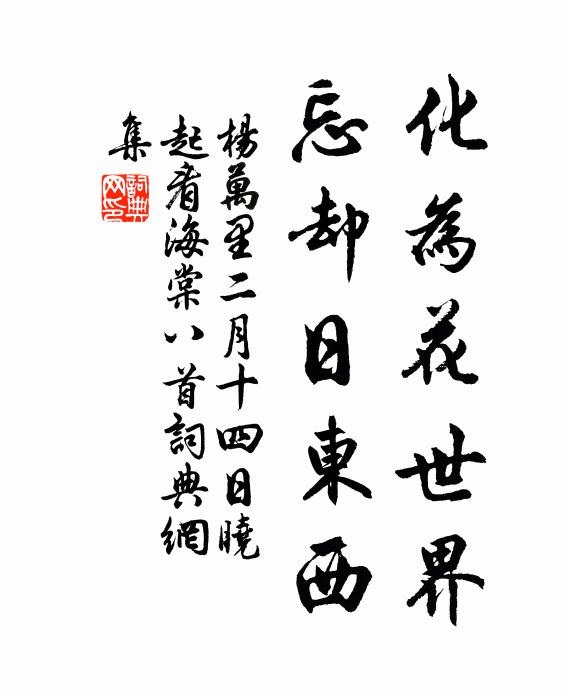 化為花世界
忘却日東西
楊萬里二月十四日曉
起看海棠八首詞典網
集
詞典
网印